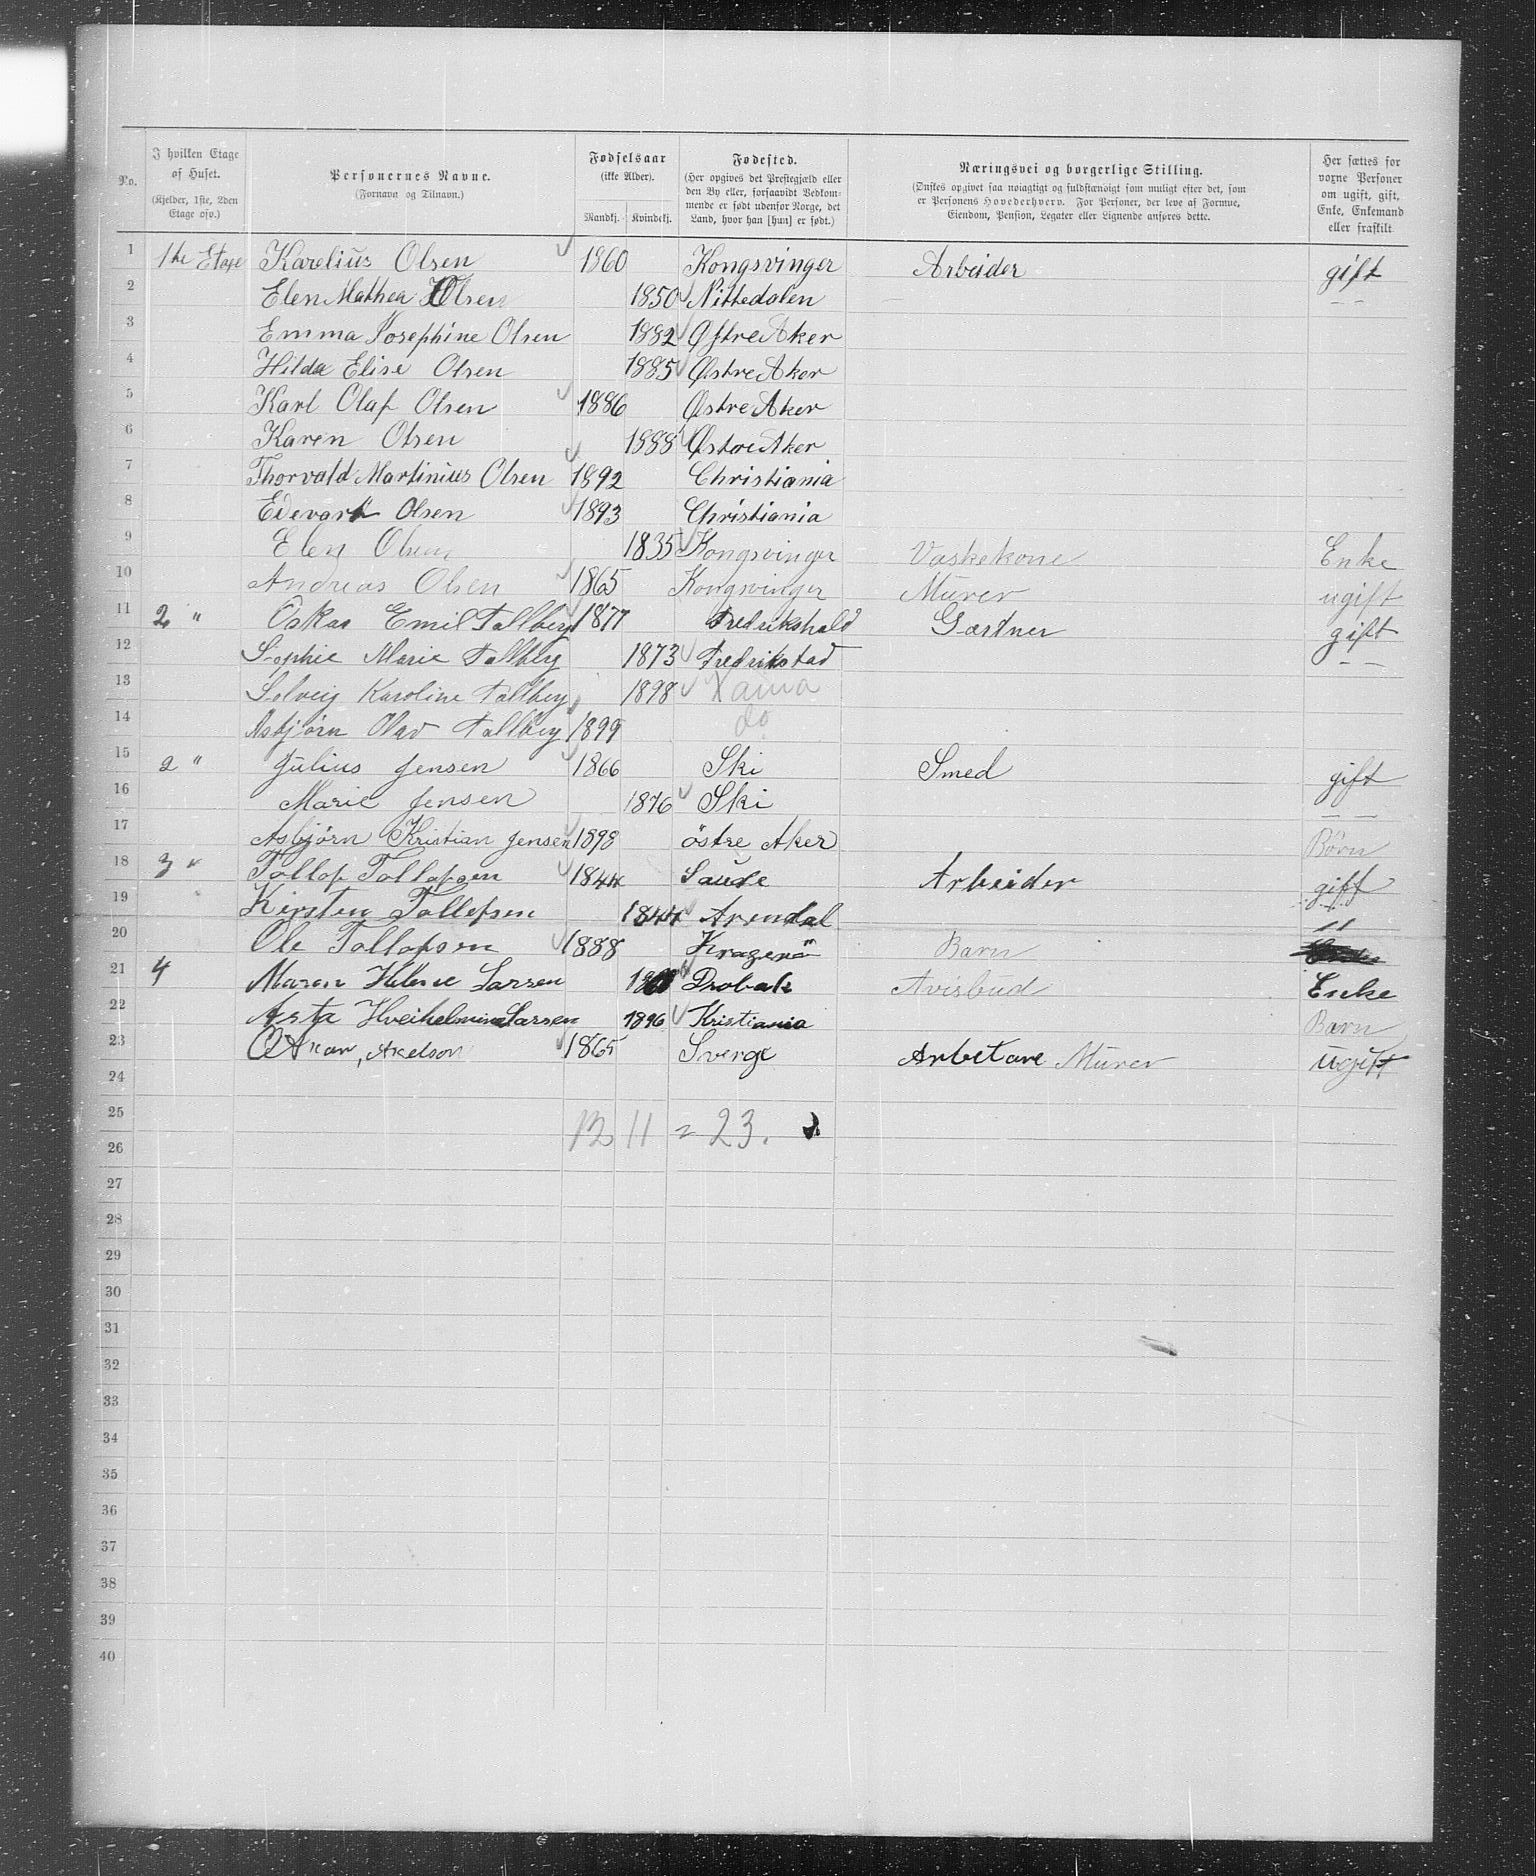 No. I hvilken Etage af Huset. (Kjelder, 1ste, 2den Etage osv.) Personernes Navne. (Fornavn og Tilnavn.) Fødselsaar (ikke Alder). Mandkj. Kvindekj. Fødested. (Her opgives det Prestegjæld eller den By eller, forsaavidt Vedkommende er født udenfor Norge, det Land, hvor han [hun] er født.) Næringsvei og borgerlige Stilling. (Ønskes opgivet saa nøiagtigt og fuldstændigt som muligt efter det, som er Personens Hovederhverv. For Personer, der leve af Formue, Eiendom, Pension, Legater eller Lignende anføres dette.) Her sættes for vorne Personer om ugift, gift, Enke, Enkemand eller fraskilt
1 1ste Etage Karelius Olsen 1860 Kongsvinger Arbeider gift
2 Elen Mathea Olsen 1850 Nittedalen — —
3 Emma Josephine Olsen 1882 Østre Aker
4 Hilda Elise Olsen 1885 Østre Aker
5 Karl Olaf Olsen 1886 Østre Aker
6 Karen Olsen 1888 Østre Aker
7 Thorvald Martinius Olsen 1892 Christiania
8 Edevart Olsen 1893 Christiania
9 Elen Olsen 1835 Kongsvinger Vaskekone Enke
10 Andreas Olsen 1865 Kongsvinger Murer ugift
11 2 " Oskar Emil Tallberg 1877 Fredrikshald Gartner gift
12 Sophie Marie Tallberg 1873 Fredrikstad — —
13 Solveig Karoline Tallberg 1898 Xania
14 Asbjørn Olav Tallberg 1899 do
15 2 " Julius Jensen 1866 Ski Smed gift
16 Marie Jensen 1876 Ski — —
17 Asbjørn Kristian Jensen 1898 östre Aker Børn
18 3 " Tollof Tollofsen 1844 Saude Arbeider gift
19 Kirsten Tollefsen 1844 Arendal "
20 Ole Tollofsen 1888 Kragerö Barn
21 4 Maren Helene Larsen Drobak Avisbud Enke
22 Asta Hveihelmine Larsen 1896 Kristiania Barn
23 Oskar, Akelson 1865 Sverge Arbetare Murer ugift
24
25 12 11 = 23.
26
27
28
29
30
31
32
33
34
35
36
37
38
39
40